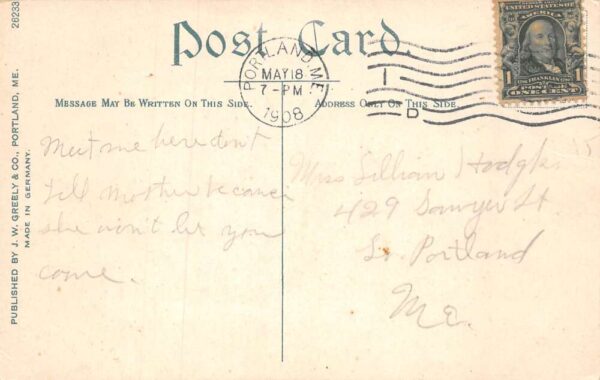 26233
Post Card.
PORTLAND, ME.
MAY 18
7-PM
1908
1
D
UNITED STATES OF
AMERICA
1 FRANKLIN
POSTAGE
ONE CENT
MESSAGE MAY BE WRITTEN ON THIS SIDE.
ADDRESS ONLY ON THIS SIDE
Meet me here don't
tell Mother because
she won't let you
come.
Miss Lillian
429 Sawyer St
So. Portland
Me.
PUBLISHED BY J. W. GREELY & CO., PORTLAND, ME.
MADE IN GERMANY.